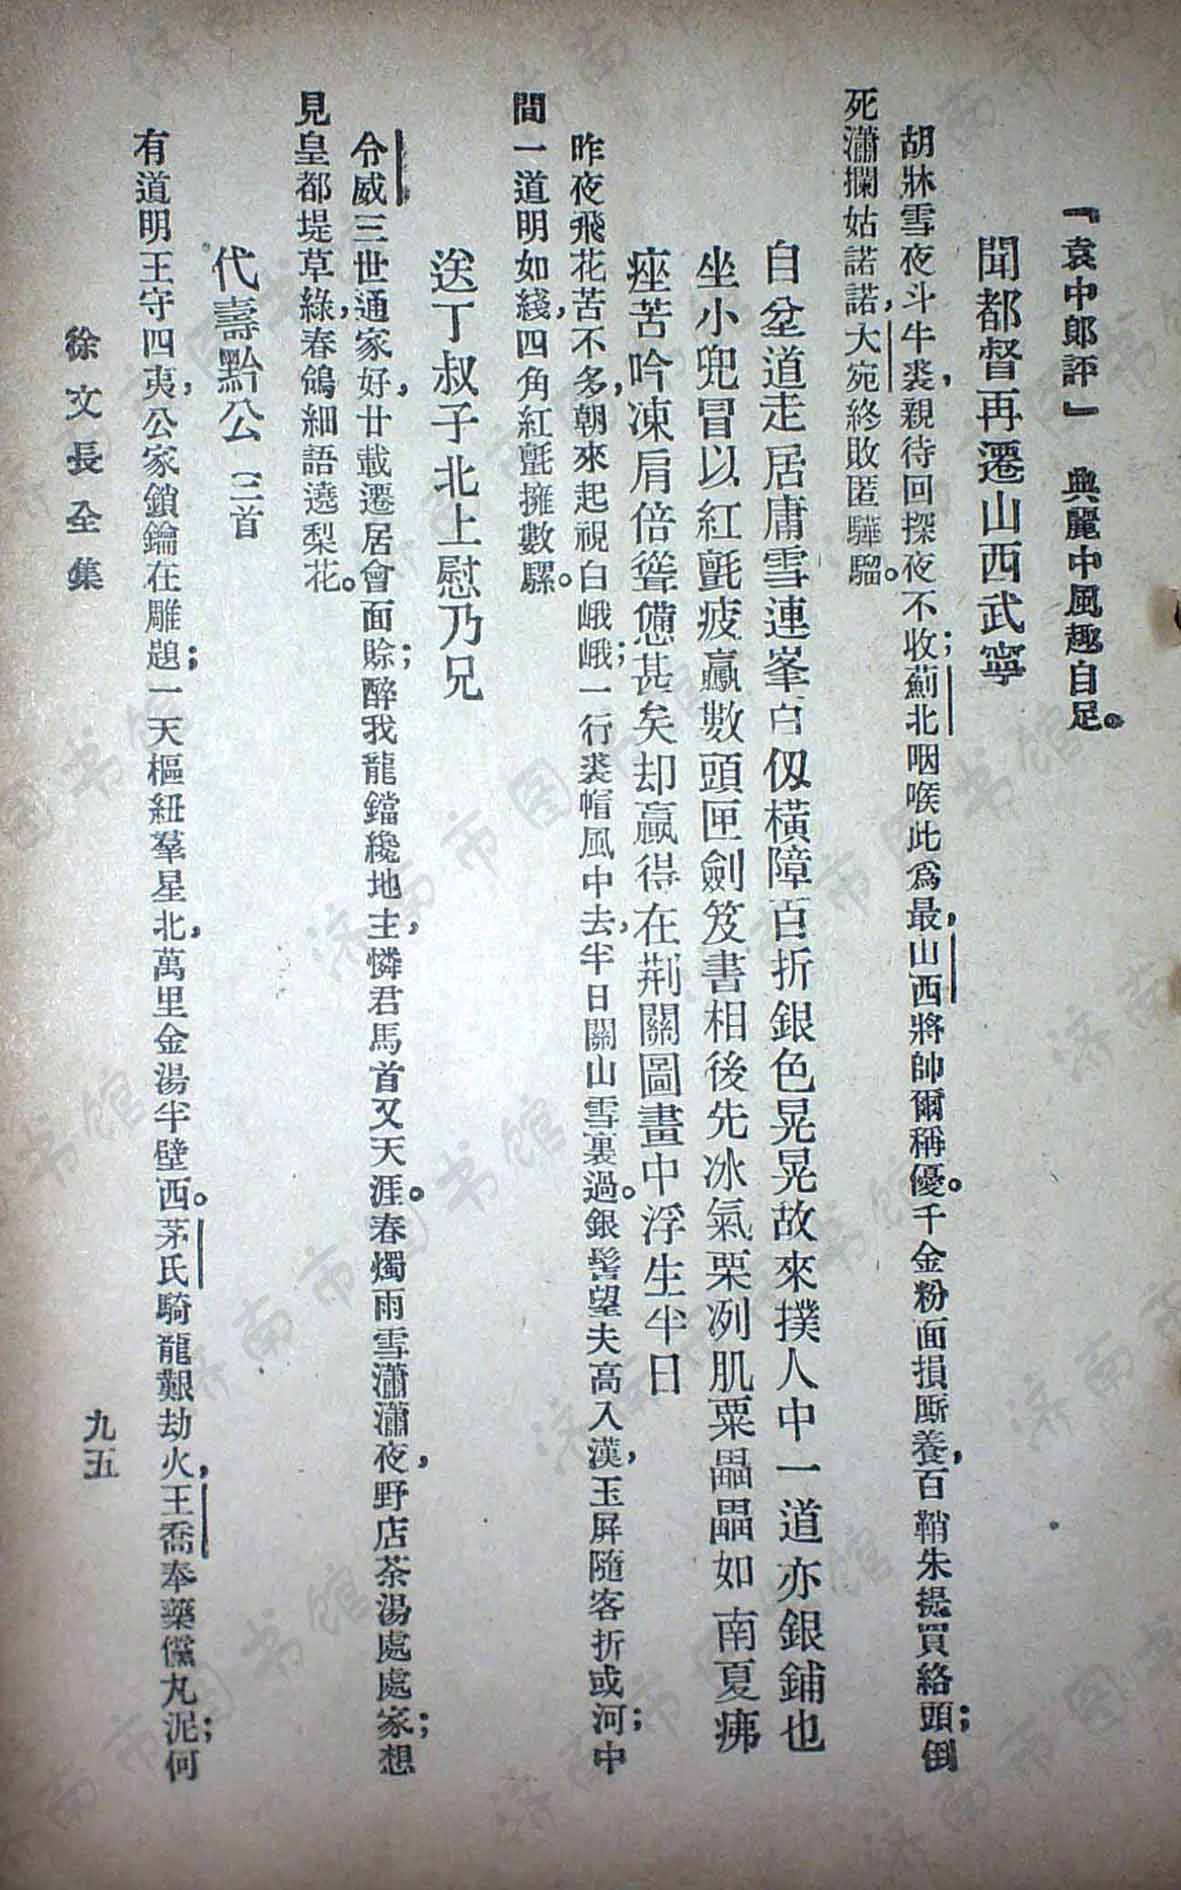 『袁中郎評』 典麗中風趣自足。
聞都督再遷山西武寧
胡牀雪夜斗牛裘，親待回探夜不收；薊北咽喉此為最，山西將帥爾稱優。千金粉面損廝養，百鞘朱提買絡頭；倒
死瀟攔姑諾諾，大宛終敗匿驊騮。
自岔道走居庸雪連峯百仭橫障百折銀色晃晃故來撲人中一道亦銀鋪也
坐小兜冒以紅氈疲驘數頭匣劍笈書相後先冰氣栗冽肌粟礨礨如南夏疿
痤苦吟凍肩倍聳憊甚矣却贏得在荊關圖畫中浮生半日
昨夜飛花苦不多，朝來起視白峨峨；一行裘帽風中去，半日關山雪裏過。銀髻望夫高入漢，玉屏隨客折或河；中
間一道明如綫，四角紅氈擁數騾。
送丁叔子北上慰乃兄
令威三世通家好，廿載遷居會面賒；醉我龍鐺纔地主，憐君馬首又天涯。春燭雨雪瀟瀟夜，野店茶湯處處家；想
見皇都堤草綠，春鴿細語遶梨花。
代壽黔公 三首
有道明王守四夷，公家鎖鑰在雕題；一天樞紐羣星北，萬里金湯半壁西。茅氏騎龍艱劫火，王喬奉藥儻丸泥；何
徐文長全集
九五